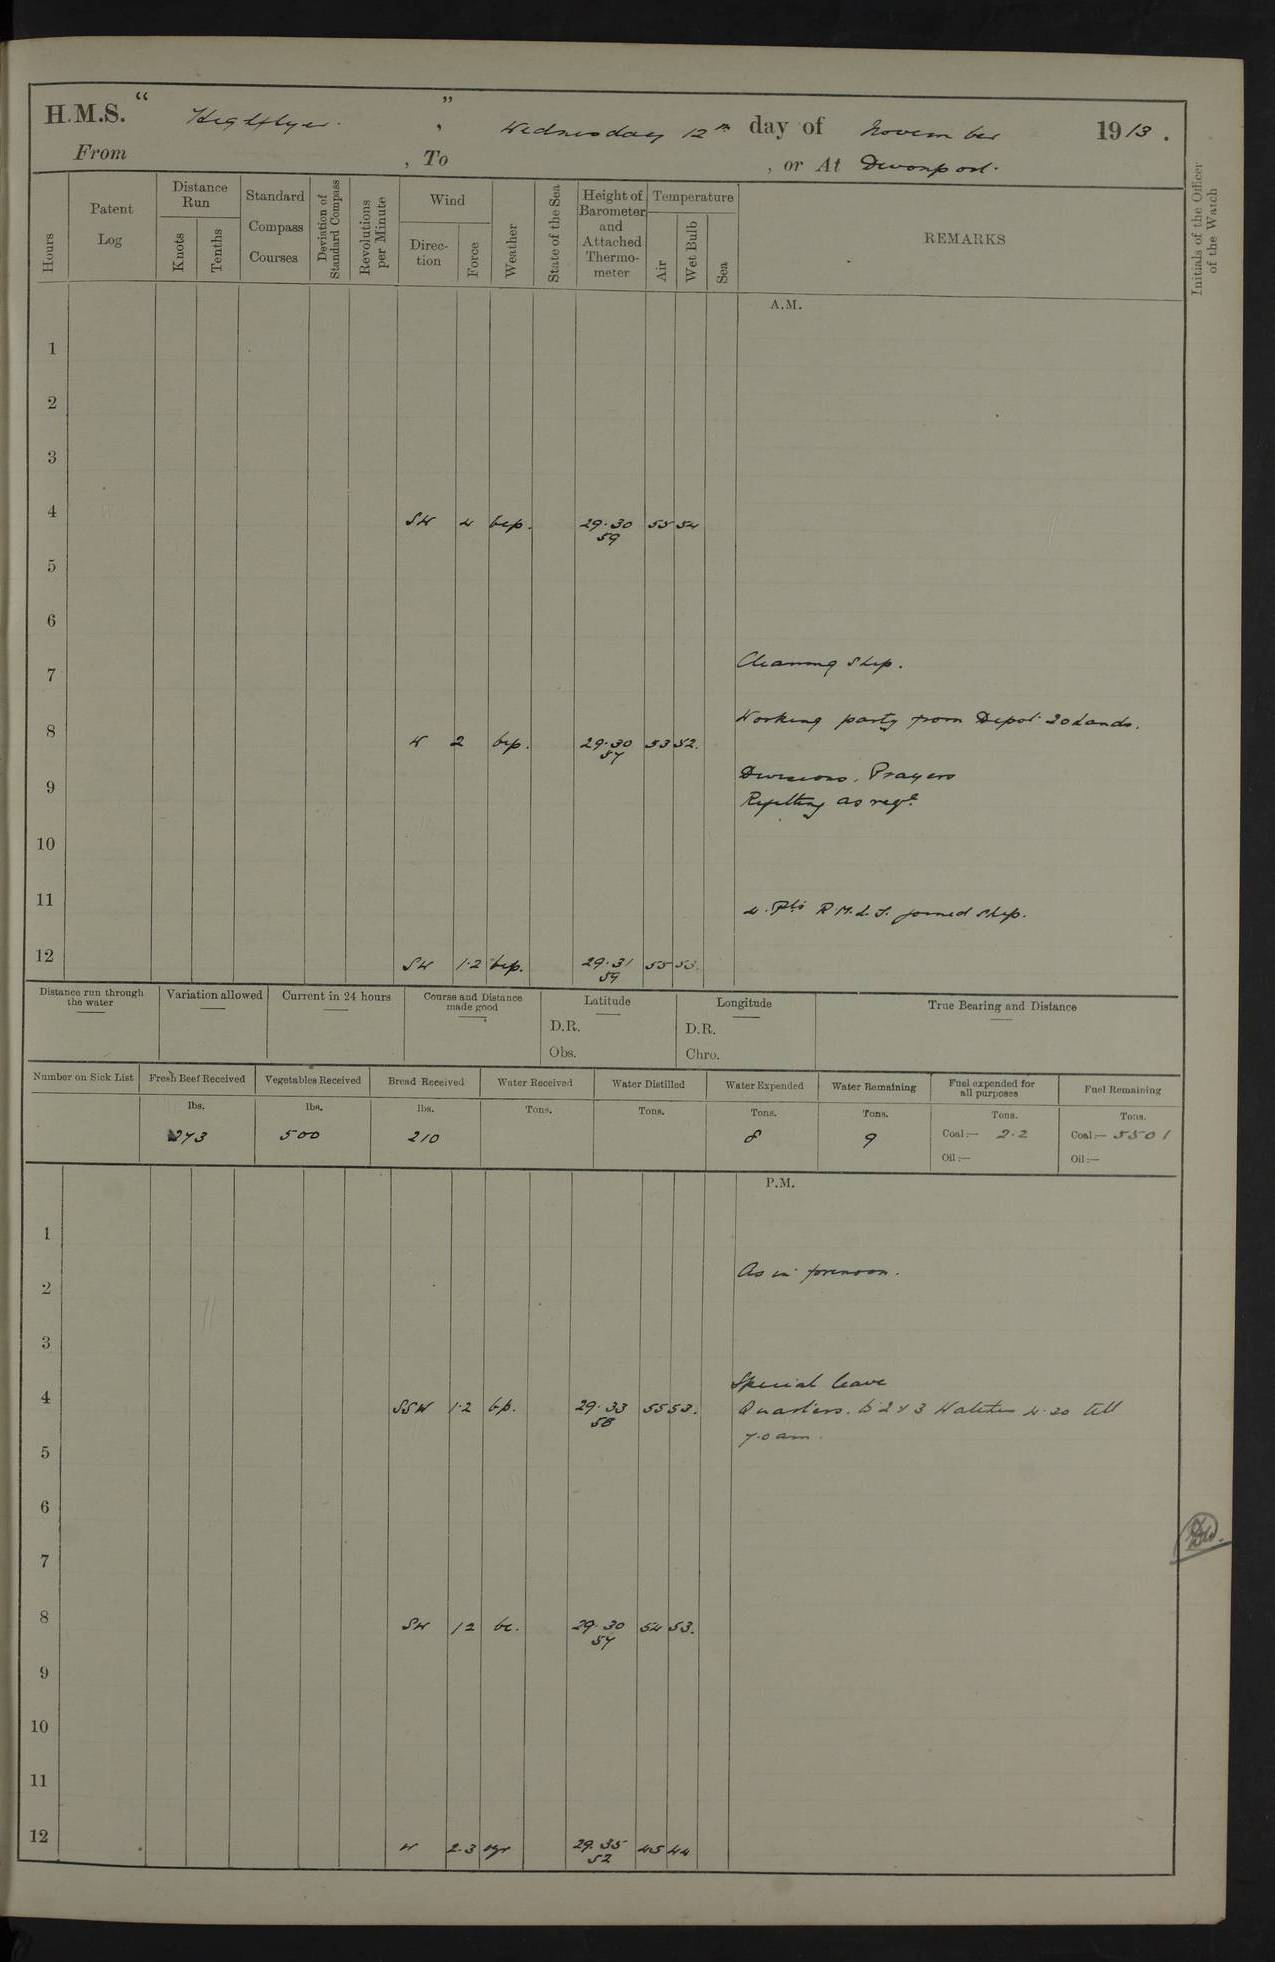 H.M.S. “ Highflyer. ” , Wednesday 12th day of November 1913.
From , To , or At Devonport.
Hours
Patent Log
Distance Run
Knots
Tenths
Standard Compass Courses
Deviation of Standard Compass
Revolutions per Minute
Wind
Direc-tion
Force
Weather
State of the Sea
Height of Barometer and Attached Thermo-meter
Temperature
Air
Wet Bulb
Sea
REMARKS
Initials of the Officer of the Watch
A.M.
1
2
3
4 SW 4 bcp. 29.30 55 54
59
5
6
Cleaning Ship.
7
Working party from Depot 30 hands.
8 W 2 bcp. 29.30 53 52.
57
Divisions. Prayers
9
Refitting as reqd.
10
11
4. Pts R.M.L.I. joined ship.
12 SW 1.2 bcp. 29.31 55 53.
59
Distance run through the water
Variation allowed
Current in 24 hours
Course and Distance made good
Latitude
D.R.
Obs.
Longitude
D.R.
Chro.
True Bearing and Distance
Number on Sick List
Fresh Beef Received
lbs.
273
Vegetables Received
lbs.
500
Bread Received
lbs.
210
Water Received
Tons.
Water Distilled
Tons.
Water Expended
Tons.
8
Water Remaining
Tons.
9
Fuel expended for all purposes
Tons.
Coal:— 2.2
Oil:—
Fuel Remaining
Tons.
Coal:— 5501
Oil:—
P.M.
1
As in forenoon.
2
3
Special leave
4 SSW 1.2 bp. 29.33 55 53. Quarters. to 2 & 3 Watches 4.20 till
58
7.0 am.
5
6
7
8 SW 1 2 bc. 29.30 54 53.
57
9
10
11
12 W 2.3 29.35 45 44
52